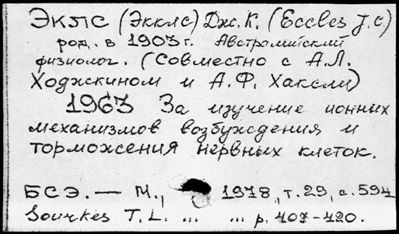 Экклс (Экклс) Дж. К. (Eccles J. C)
род. в 1903 г. Австралийский
физиолог. (Совместно с А.Л.
Ходжкином и А.Ф. Хаксли)
1963 За изучение ионных
механизмов возбуждения и
торможения нервных клеток.
БСЭ. — М., 1978, т. 29, с. 594
Sourkes T. L. ... ... p. 407-420.